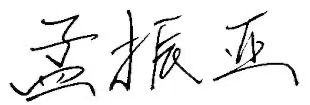 孟振亚